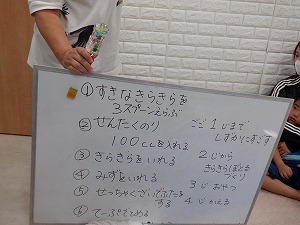 ① すきなきらきらを
3スプーンえらぶ
② せんたくのり
100ccを入れる
③ きらきらをいれる
④ みずをいれる
⑤ せっちゃくざいでふたを
する
⑥ てーぷでとめる
ごご1じまで
しずかにすごす
2じから
きらきらぼとる
づくり
3じおやつ
4じかえる